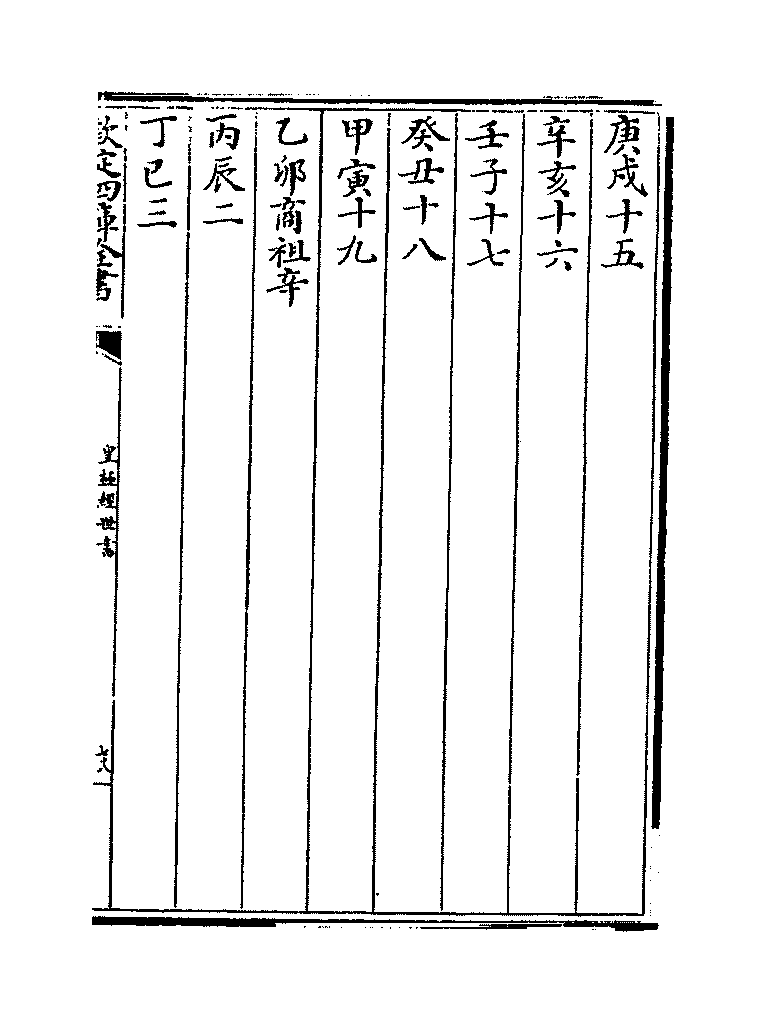 庚戌十五
辛亥十六
壬子十七
癸丑十八
甲寅十九
乙卯商祖辛
丙辰二
丁巳三
欽定四庫全書
皇極經世書
七十八